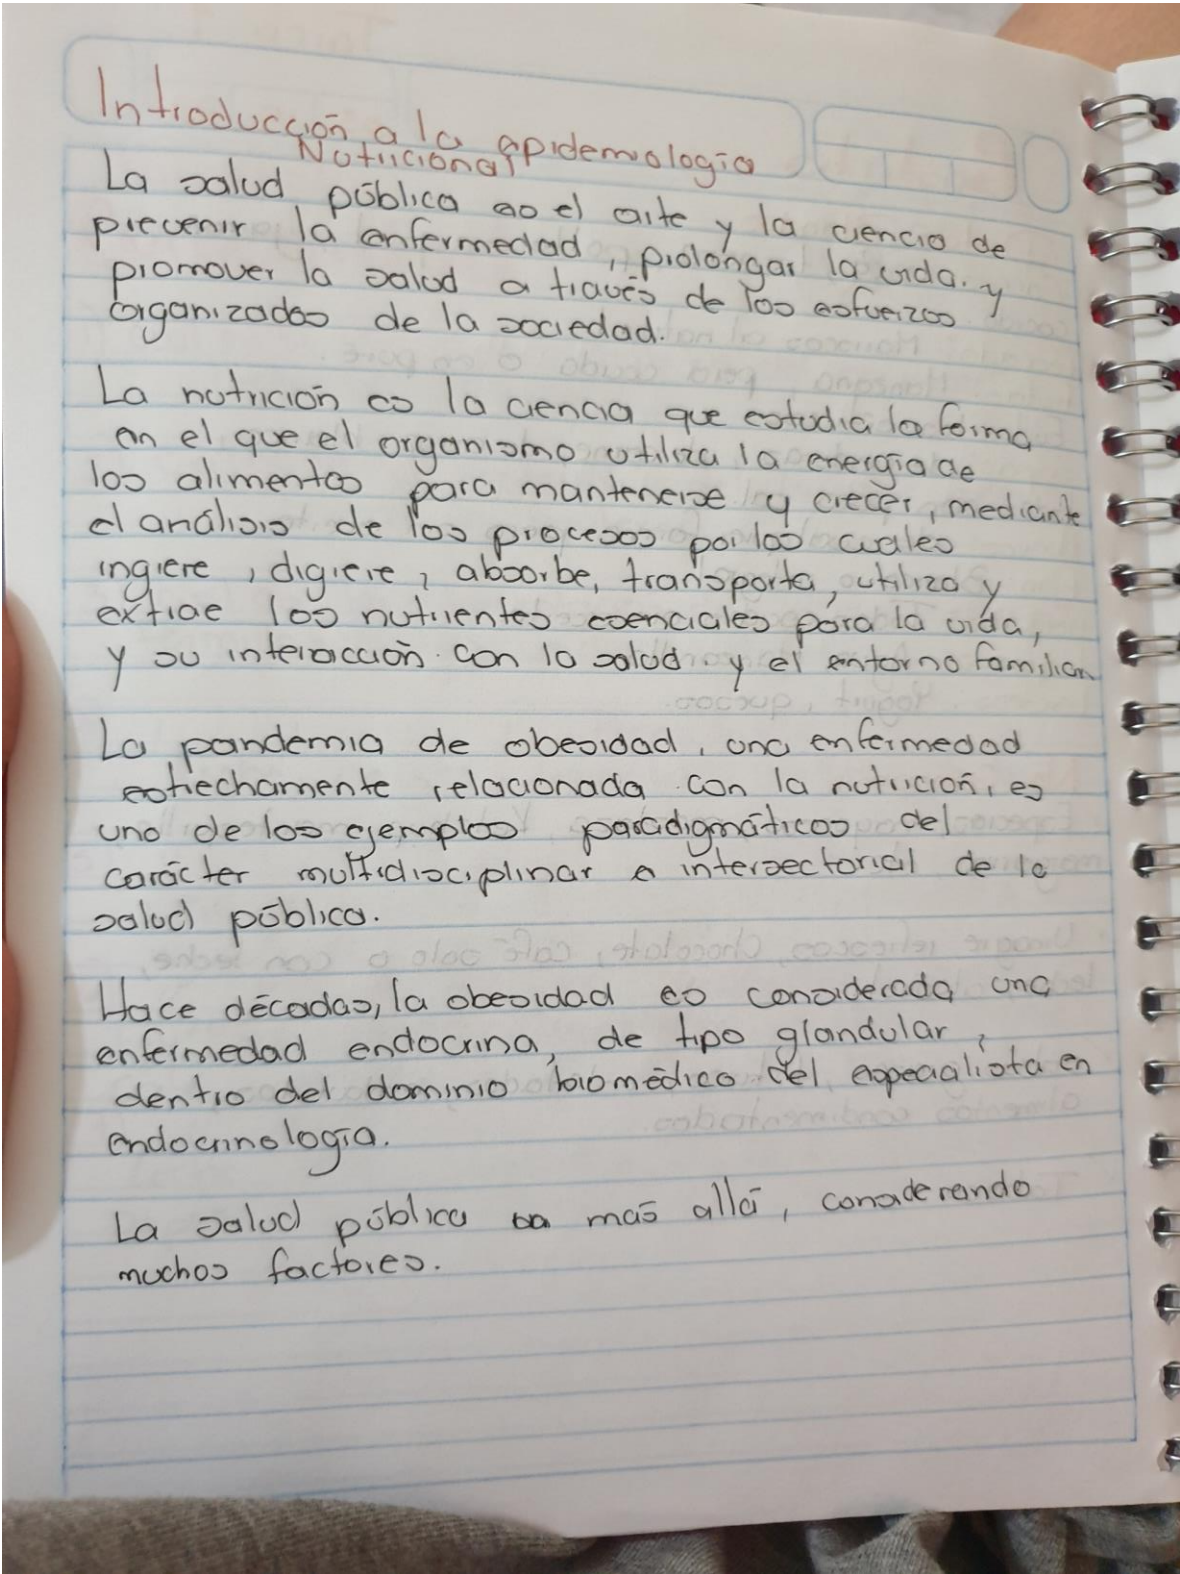 Introducción a la epidemiología
Nutricional
La salud pública es el arte y la ciencia de
prevenir la enfermedad, prolongar la vida. y
promover la salud a través de los esfuerzos
organizados de la sociedad.
La nutrición es la ciencia que estudia la forma
en el que el organismo utiliza la energía de
los alimentos para mantenerse y crecer, mediante
el análisis de los procesos por los cuales
ingiere, digiere, absorbe, transporta, utiliza y
extrae los nutrientes esenciales para la vida,
y su interacción con la salud y el entorno familiar
La pandemia de obesidad, una enfermedad
estrechamente relacionada con la nutrición, es
uno de los ejemplos paradigmáticos del
carácter multidisciplinar e intersectorial de la
salud pública.
Hace décadas, la obesidad es considerada una
enfermedad endocrina, de tipo glandular,
dentro del dominio biomédico del especialista en
endocrinología.
La salud pública va más allá, considerando
muchos factores.